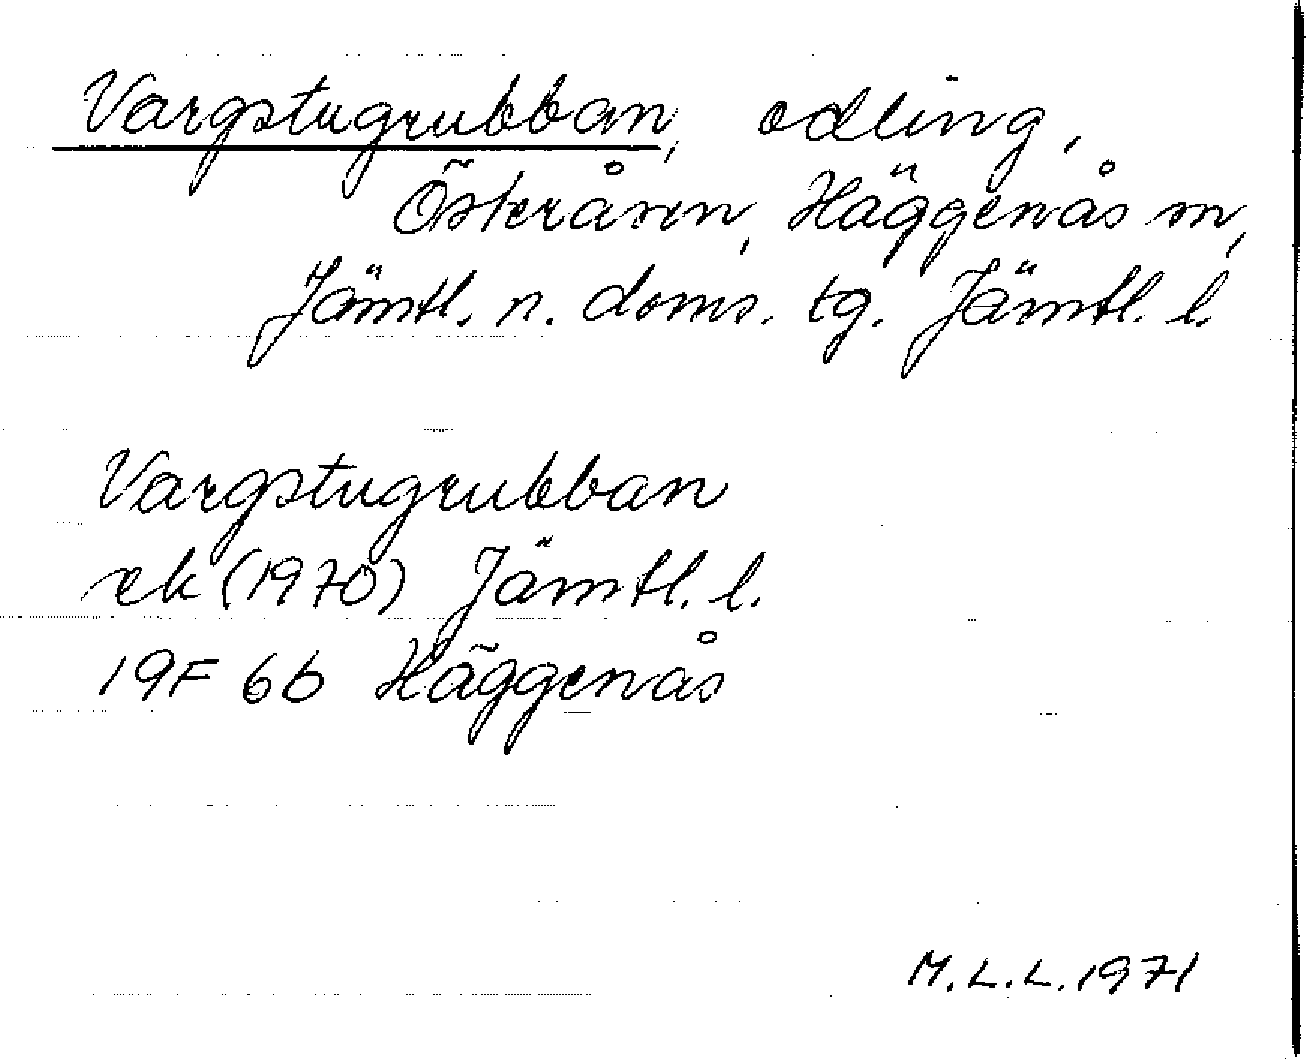 Vargstugrubban, odling,
Österåsen, Häggenås sn,
Jämtl. n. doms. tg. Jämtl. l.
Vargstugrubban
ek (1970) Jämtl. l.
19F 6b Häggenås
M.L.L. 1971